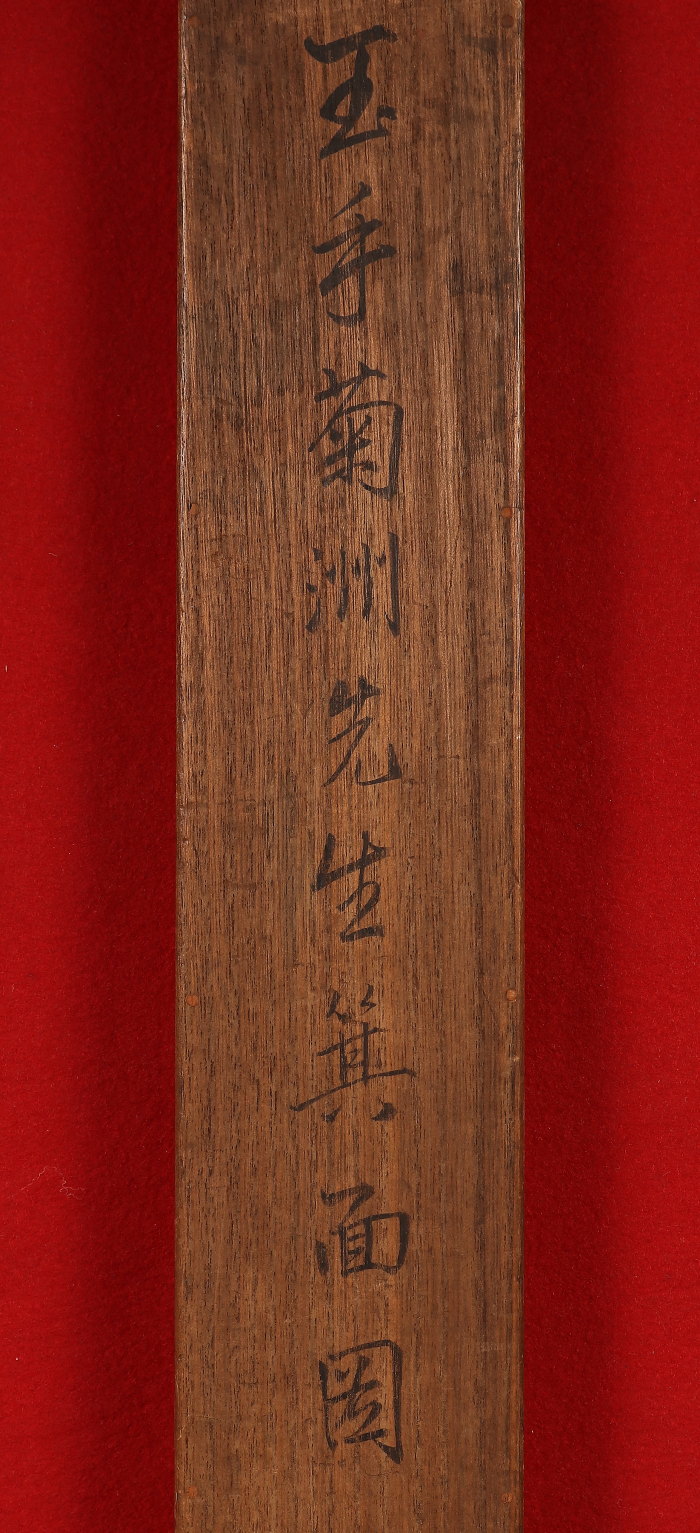 玉手菊洲先生箕面図